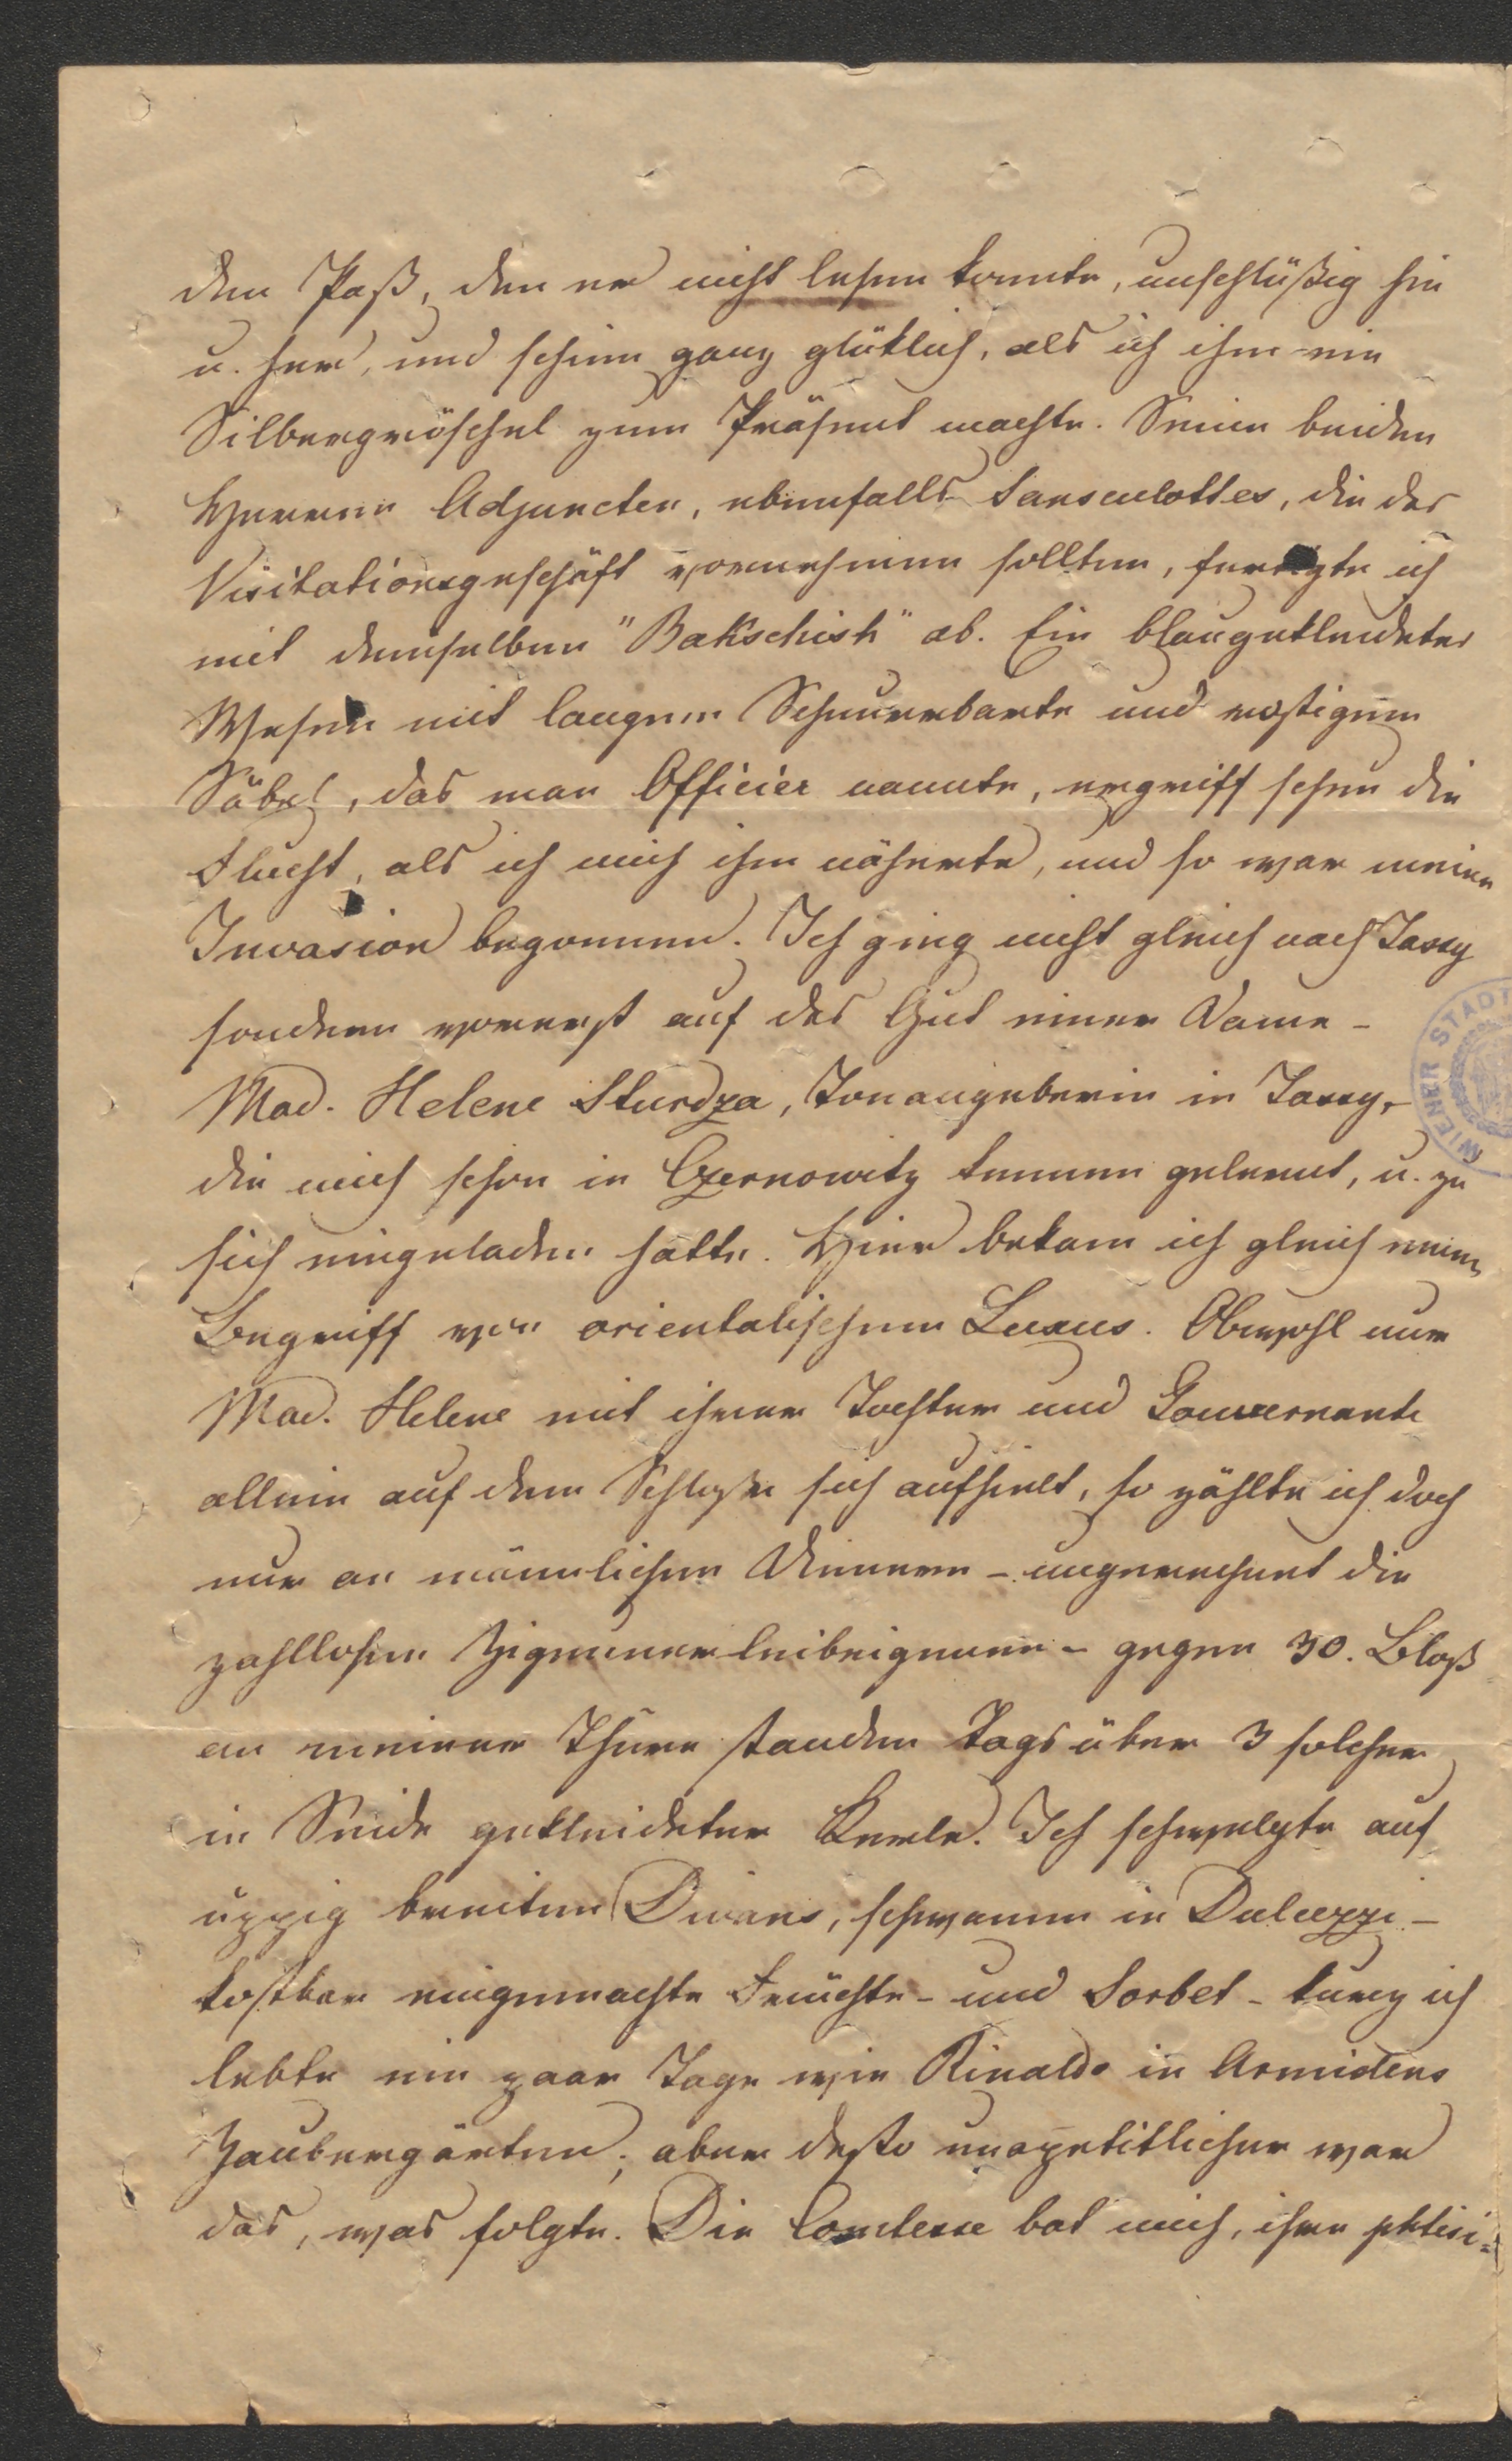 den Paß, den er nicht lesen konnte, unschlüßig hin
u. her, und schien ganz glüklich, als ich ihm ein
Silbergröschel zum Präsent machte. Seine beiden
Herren Adjuncten, ebenfalls Sansculottes, die das
Visitationsgeschäft vornehmen sollten, fertigte ich
mit demselben "Bakschish" ab. Ein blaugekleidetes
Wesen mit langem Schnurrbarte und rostigem
Säbel, das man Officier nannte, ergriff schon die
Flucht, als ich mich ihm näherte, und so war meine
Invasion begonnen. Ich ging nicht gleich nach Jassy
sondern vorerst auf das Gut einer Dame -
Mad. Helene Sturdza, Tonangeberin in Jassy,
die mich schon in Czernowitz kennen gelernt, u. zu
sich eingeladen hatte. Hier bekam ich gleich einen
Begriff von orientalischem Luxus. Obwohl nur
Mad. Helene mit ihrer Tochter und Gouvernante
allein auf dem Schloße sich aufhielt, so zählte ich doch
nur an männlichen Dienern - ungerechnet die
zahllosen Zigeunerleibeignen - gegen 30. Bloß
an meiner Thüre standen tags über 3 solcher
in Seide gekleideter Kerle. Ich schwelgte auf
üppig breiten Divans, schwamm in Dulcezzi -
kostbar eingemachte Früchte - und Sorbet - kurz ich
lebte ein paar Tage wie Rinaldo in Armidens
Zaubergärten; aber desto unapetitlicher war
das, was folgte. Die Comtesse bat mich, ihren phtisi=
WIENER STADT